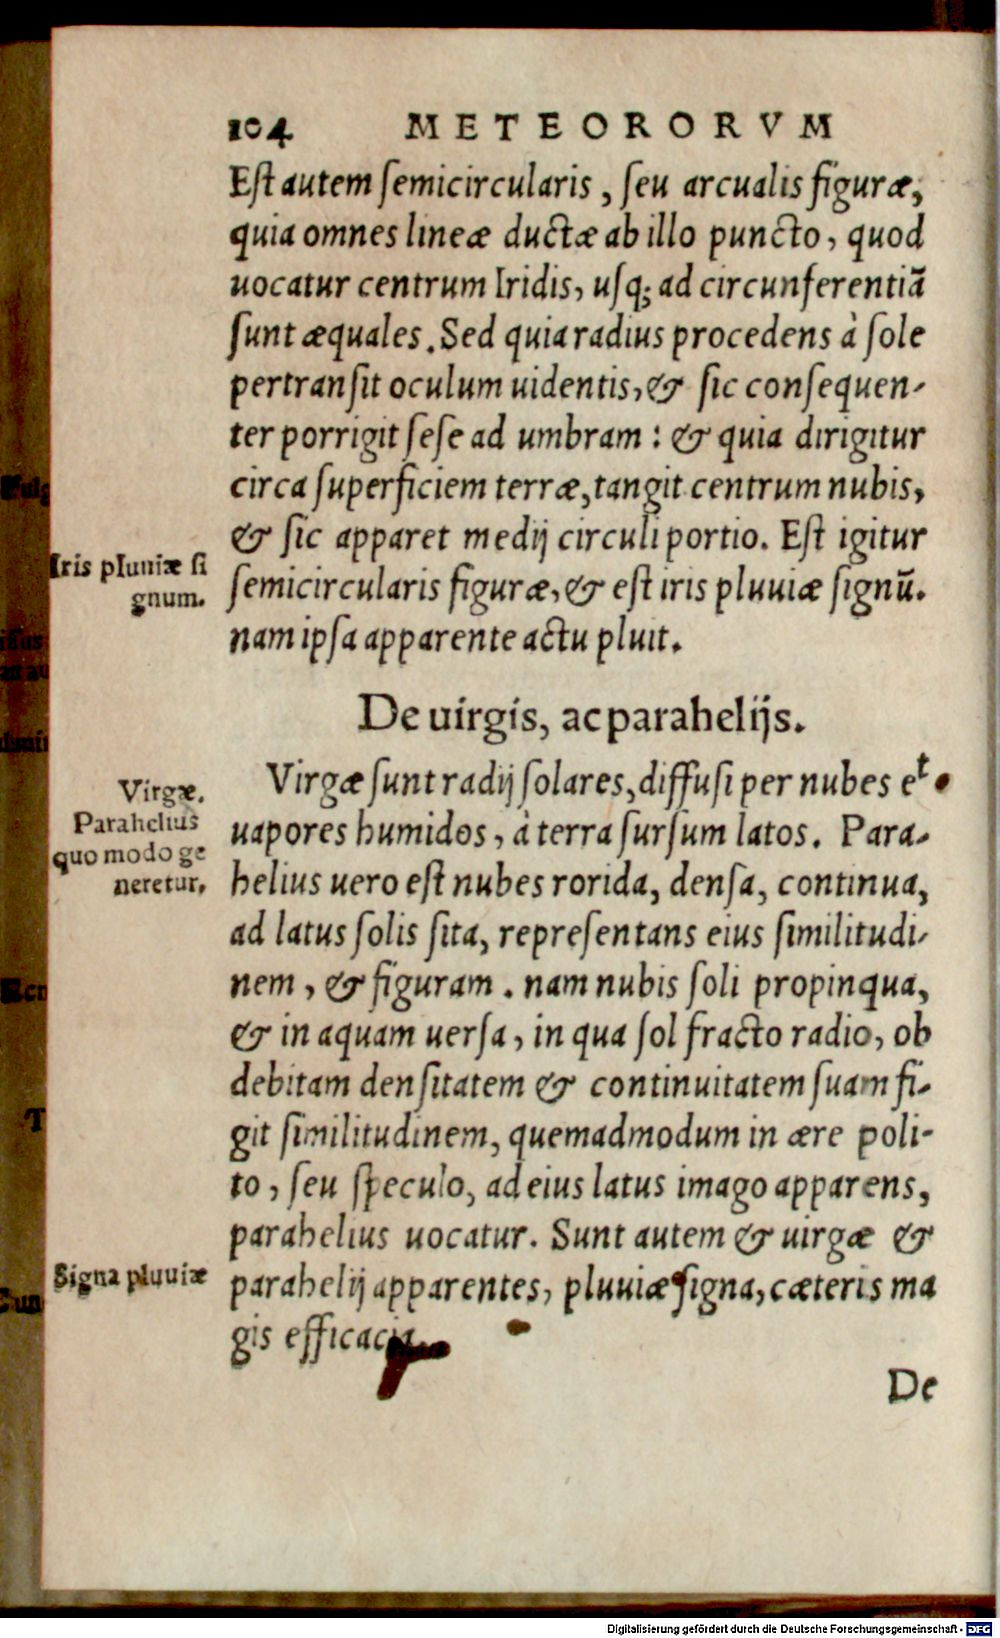 104 METEORORVM
Eſt autem ſemicircularis, ſeu arcualis figuræ,
quia omnes lineæ ductæ ab illo puncto, quod
uocatur centrum Iridis, uſq; ad circunferentiā
ſunt æquales. Sed quia radius procedens à ſole
pertranſit oculum uidentis, & ſic conſequen-
ter porrigit ſeſe ad umbram: & quia dirigitur
circa ſuperficiem terræ, tangit centrum nubis,
& ſic apparet medij circuli portio. Eſt igitur
Iris pluuiæ ſi
gnum.
ſemicircularis figuræ, & eſt iris pluuiæ ſignū.
nam ipſa apparente actu pluit.
De uirgis, ac parahelijs.
Virgæ.
Parahelius
quo modo ge
neretur.
Virgæ ſunt radij ſolares, diffuſi per nubes et
uapores humidos, à terra ſurſum latos. Para-
helius uero eſt nubes rorida, denſa, continua,
ad latus ſolis ſita, repreſentans eius ſimilitudi-
nem, & figuram. nam nubis ſoli propinqua,
& in aquam uerſa, in qua ſol fracto radio, ob
debitam denſitatem & continuitatem ſuam fi-
git ſimilitudinem, quemadmodum in ære poli-
to, ſeu ſpeculo, ad eius latus imago apparens,
parahelius uocatur. Sunt autem & uirgæ &
Signa pluuiæ
parahelij apparentes, pluuiæ ſigna, cæteris ma
gis efficacia.
De
Digitalisierung gefördert durch die Deutsche Forschungsgemeinschaft - DFG